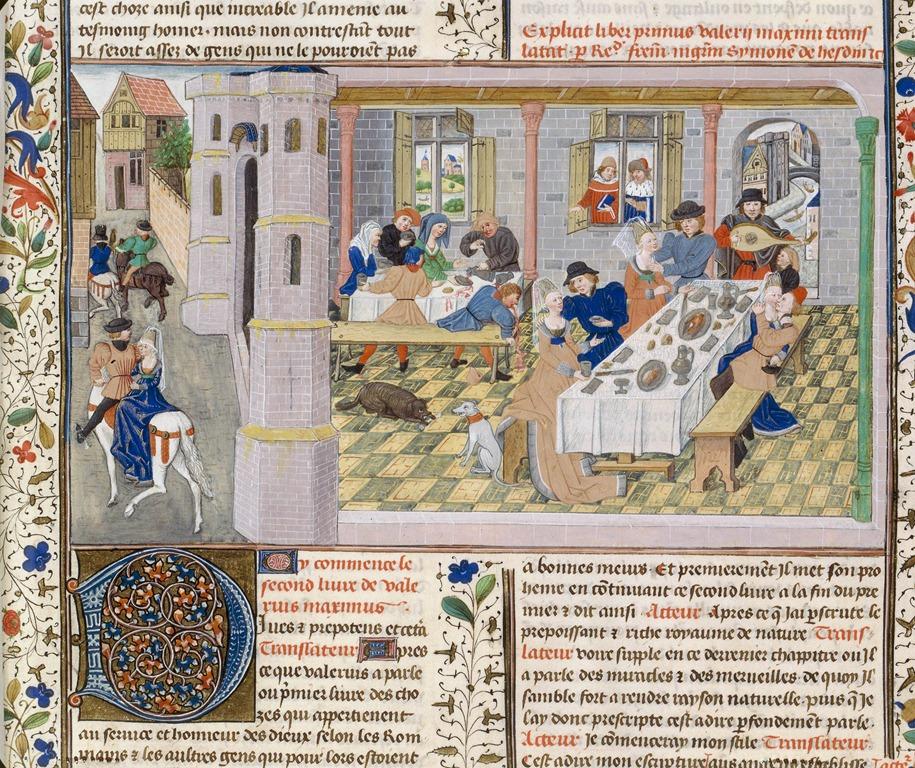 cest chose ainsi que increable Il ameine au
tesmoing homer. mais non contrestāt tout
Il seroit assez de gens qui ne le pouroiēt pas
Explicit liber primus valerij maximi trans
latat. p Red. frēm mgīm Symonē de hesdin
Cy commence le
second liure de vale
rius maximus
Diues & prepotens et cetā
Translateur Apres
ce que valerius a parle
ou pmier liure des cho
zes qui appertienent
au seruice et honneur des dieux selon les Rom
mains & les aultres gens qui pour lors estoient
a bonnes meurs. Et premieremēt Il met son pro
heme en cōtinuant ce second liure a la fin du pre
mier & dit ainsi Acteur Apres ce q̄ Jai pscrute le
prepoissant & riche royaume de nature Trans
lateur voire supple en ce derrenier chappitre ou Il
a parle des miracles & des merueilles. de quoy Il
samble fort a rendre rayson naturelle. puis q̄ Je
lay donc prescripte cest adire pfondement parle.
Acteur Je cōmenceray mon stile Translateur
Cest adire mon escripture